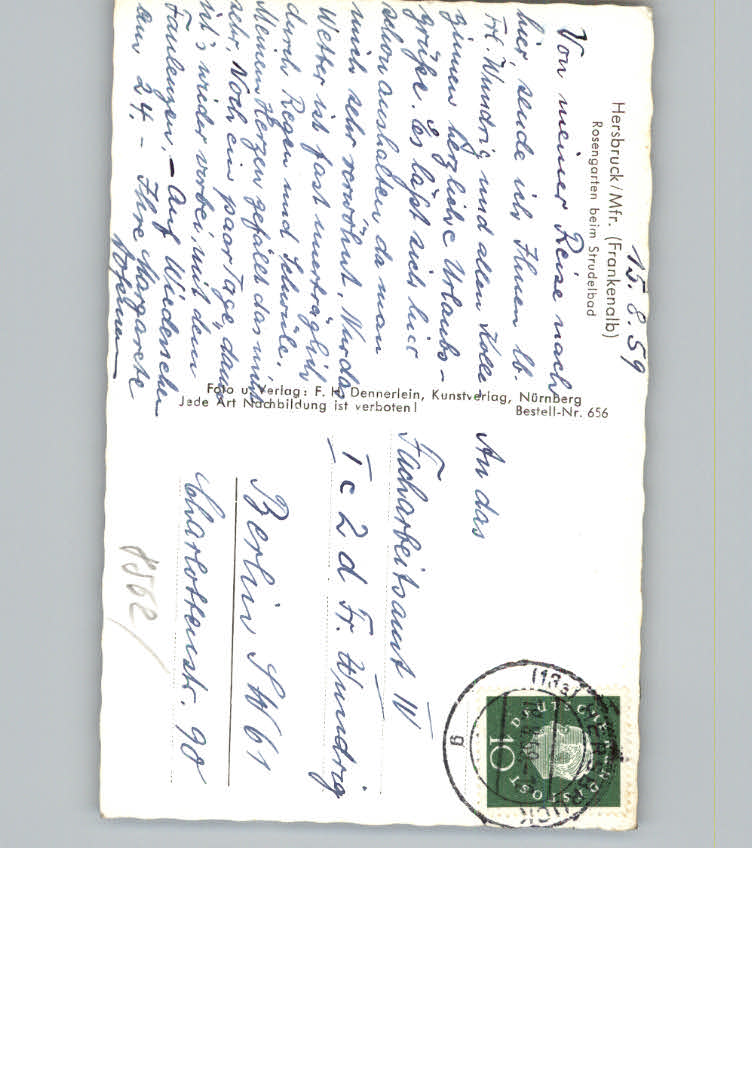 Hersbruck/Mfr. (Frankenalb)
Rosengarten beim Strudelbad
15.8.59
Von meiner Reise nach
hier sende ich Ihnen lb.
Frl. Wundrig und allen Kolle
ginnen herzliche Urlaubs-
grüße. Es läßt sich hier
schon aushalten da man
mich sehr verwöhnt. Nur das
Wetter ist fast unerträglich
durch Regen und Schwüle.
Meinem Herzen gefällt das nicht
sehr. Noch ein paar Tage, dann
ist's wieder vorbei mit dem
Faulenzen. – Auf Wiedersehen
am 24. – Ihre Margarete
Foto u. Verlag: F. H. Dennerlein, Kunstverlag, Nürnberg
Jede Art Nachbildung ist verboten!
Bestell-Nr. 656
An das
Facharbeitsamt IV
I c 2 d Fr. Wundrig
Berlin SW 61
Charlottenstr. 90
8562/
(13a) HERSBRUCK
g
DEUTSCHE BUNDESPOST
10